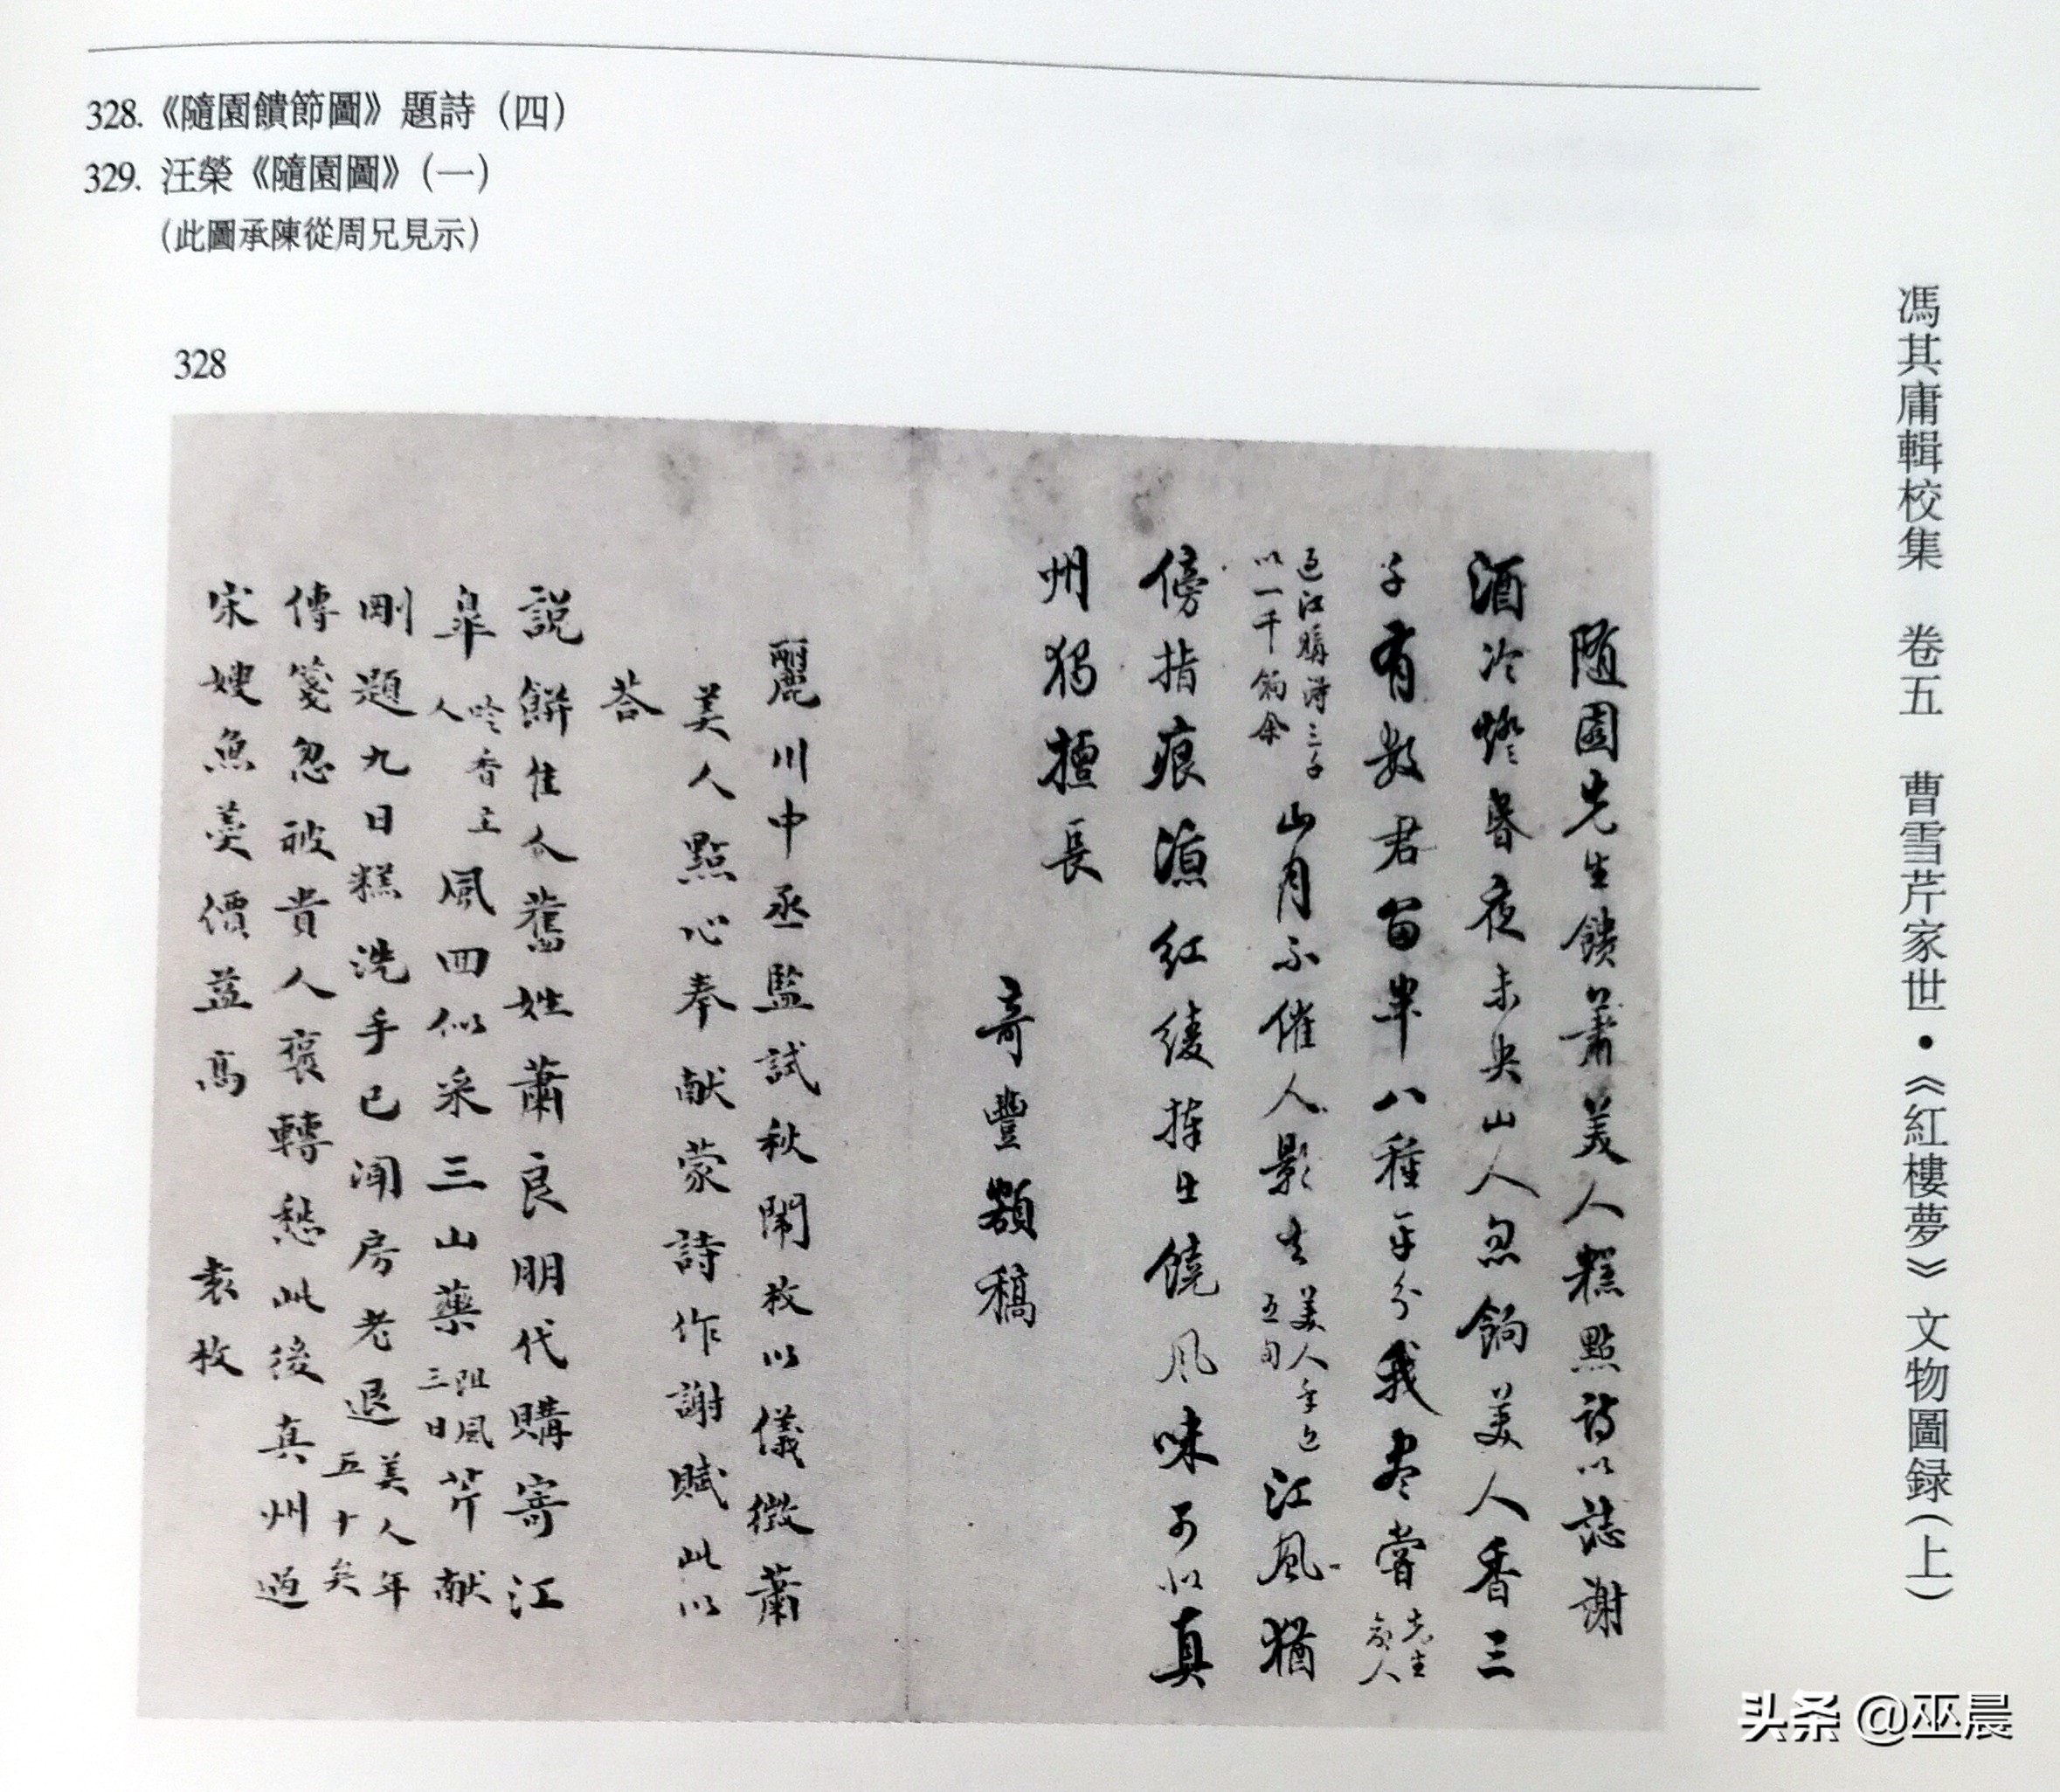 328.《隨園饋節圖》題詩（四）
329. 汪榮《隨園圖》（一）
（此圖承陳從周兄見示）
328
随園先生饋蕭美人糕點詩以誌謝
酒冷燈昏夜未央山人忽餉美人香三
子有数君留半八種平分我盡嘗先生
命人
過江購得三千
以一千餉余山月不催人影去美人年已
五旬江風猶
傍指痕涼紅綾捧出饒風味可知真
州獨擅長
奇豐額稿
麗川中丞監試秋闈枚以儀徵蕭
美人點心奉献蒙詩作謝賦此以
荅
説餅佳人舊姓蕭良朋代購寄江
皐吟香主
人風回似采三山藥阻風
三日芹献
剛題九日糕洗手已闻房老退美人年
五十矣
傳箋忽被貴人褒轉愁此後真州過
宋嫂魚羹價益高
袁枚
馮其庸輯校集 卷五 曹雪芹家世·《紅樓夢》文物圖録（上）
头条 @巫晨